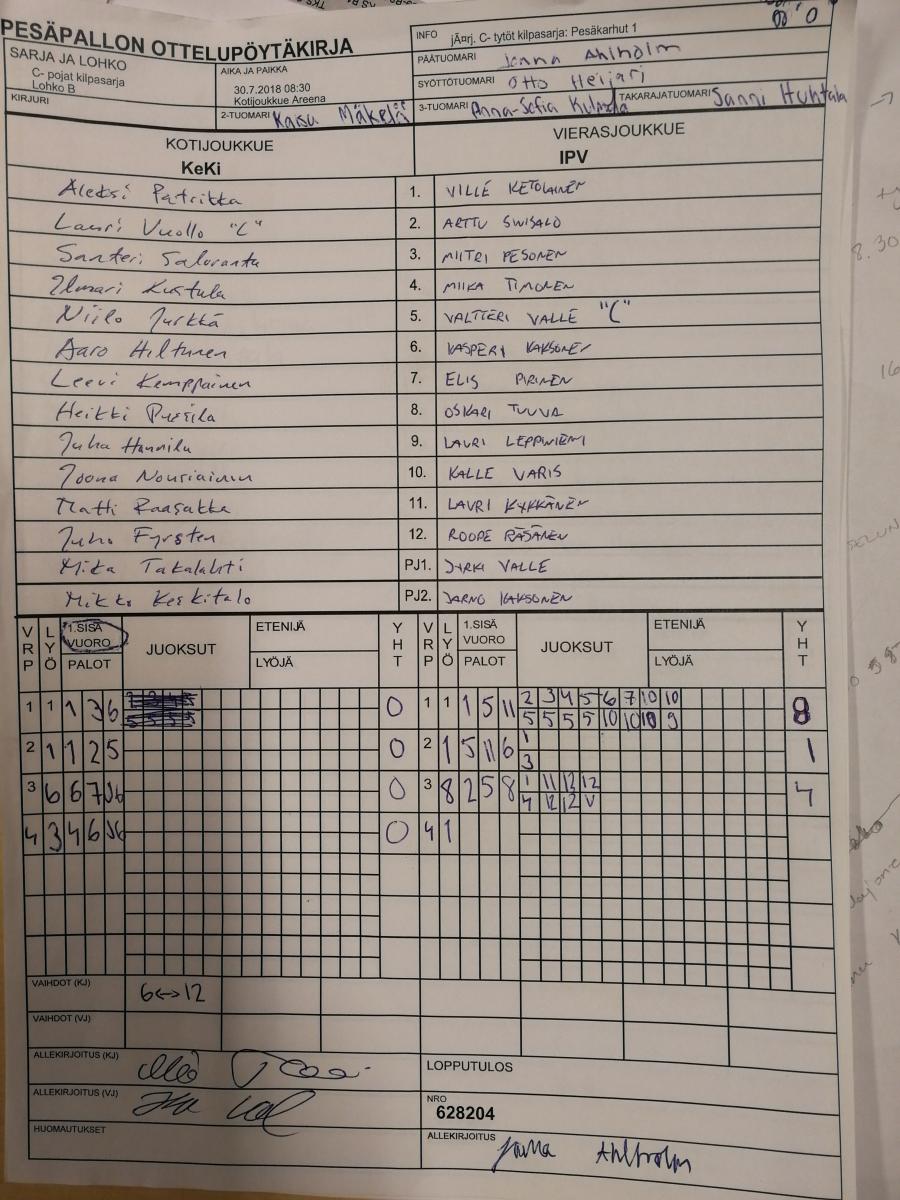 PESÄPALLON OTTELUPÖYTÄKIRJA
SARJA JA LOHKO
C- pojat kilpasarja
Lohko B
KIRJURI
AIKA JA PAIKKA
30.7.2018 08:30
Kotijoukkue Areena
2-TUOMARI Kaisu Mäkelä
INFO jÃ¤rj. C- tytöt kilpasarja: Pesäkarhut 1
PÄÄTUOMARI Janna Ahlholm
SYÖTTÖTUOMARI Otto Heijari
3-TUOMARI Anna-Sofia TAKARAJATUOMARI Sanni Huhtala
KOTIJOUKKUE VIERASJOUKKUE
KeKi IPV
Aleksi Patrikka 1. VILLE KETOLAINEN
Lauri Vuollo "C" 2. ARTTU
Santeri Saloranta 3. MIITRI PESONEN
Ilmari Kustula 4. MIIKA TIMONEN
Niilo Jurkka 5. VALTTERI VALLE "C"
Aaro Hiltunen 6. KASPERI KAKSONEN
Leevi Kemppainen 7. ELIS PIRINEN
Heikki Pussila 8. OSKARI TUUVA
Juha Hannila 9. LAURI LEPPINIEMI
Joona Nousiainen 10. KALLE VARIS
Matti Raasakka 11. LAURI KYKKÄNEN
Juho Fyrsten 12. ROOPE RÄSÄNEN
Mika Takalahti PJ1. JYRKI VALLE
Mikko Keskitalo PJ2. JARNO KAKSONEN
VRP LYÖ 1.SISÄ VUORO PALOT JUOKSUT ETENIJÄ LYÖJÄ YHT VRP LYÖ 1.SISÄ VUORO PALOT JUOKSUT ETENIJÄ LYÖJÄ YHT
1 1 1 3 6 0 1 1 1 5 11 2 3 4 5 6 7 10 10 8
5 5 5 5 10 10 10 9
2 1 1 2 5 0 2 1 5 11 6 1 1
3
3 6 6 7 0 3 8 2 5 8 1 11 12 12 4
4 12 12 V
4 3 4 6 0 4 1
VAIHDOT (KJ) 6<->12
VAIHDOT (VJ)
ALLEKIRJOITUS (KJ)
ALLEKIRJOITUS (VJ)
HUOMAUTUKSET
LOPPUTULOS
NRO
628204
ALLEKIRJOITUS Janna Ahlholm
8.30
16